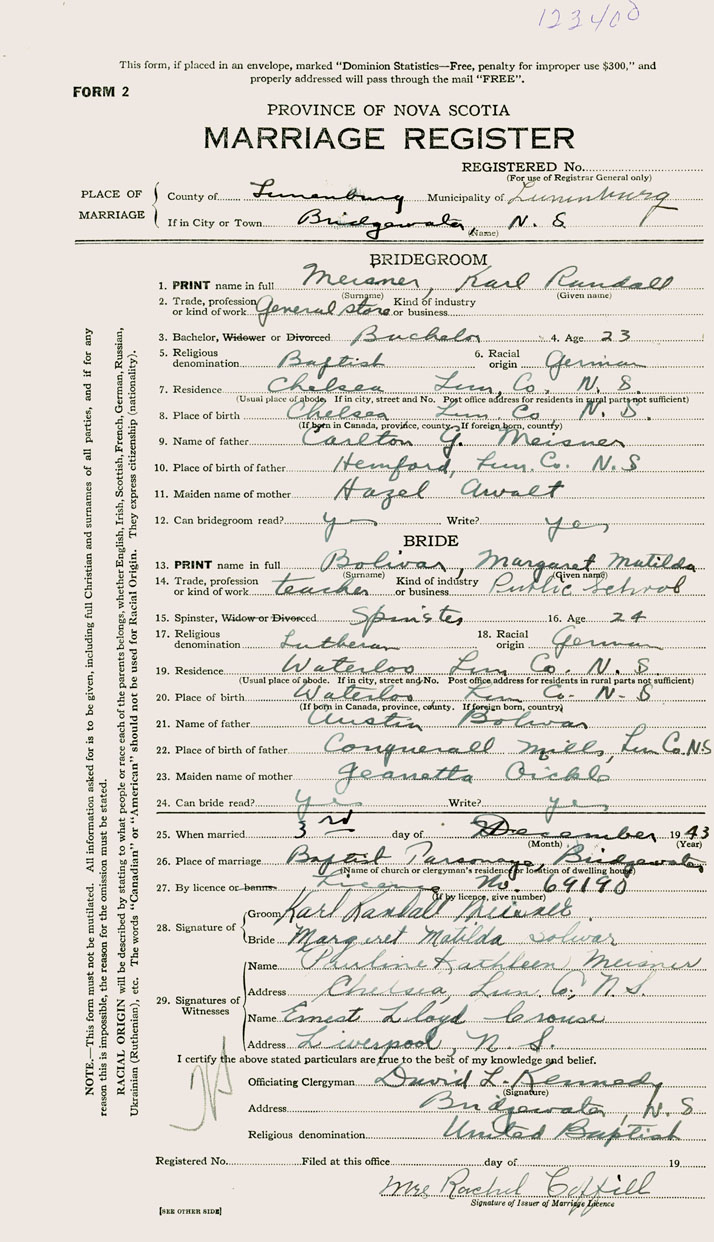 123400
This form, if placed in an envelope, marked "Dominion Statistics—Free, penalty for improper use $300," and
properly addressed will pass through the mail "FREE".
FORM 2
PROVINCE OF NOVA SCOTIA
MARRIAGE REGISTER
REGISTERED No.
(For use of Registrar General only)
PLACE OF MARRIAGE
County of Lunenburg Municipality of Lunenburg
If in City or Town Bridgewater, N. S.
(Name)
BRIDEGROOM
1. PRINT name in full Meisner, Karl Randall
(Surname) (Given name)
2. Trade, profession or kind of work General store Kind of industry or business
3. Bachelor, Widower or Divorced Bachelor 4. Age 23
5. Religious denomination Baptist 6. Racial origin German
7. Residence Chelsea Lun. Co. N. S.
(Usual place of abode. If in city, street and No. Post office address for residents in rural parts not sufficient)
8. Place of birth Chelsea Lun. Co. N. S.
(If born in Canada, province, county. If foreign born, country)
9. Name of father Carlton G. Meisner
10. Place of birth of father Hemford, Lun. Co. N. S
11. Maiden name of mother Hazel Awalt
12. Can bridegroom read? yes Write? yes
BRIDE
13. PRINT name in full Bolivar, Margaret Matilda
(Surname) (Given name)
14. Trade, profession or kind of work teacher Kind of industry or business Public School
15. Spinster, Widow or Divorced Spinster 16. Age 24
17. Religious denomination Lutheran 18. Racial origin German
19. Residence Waterloo Lun Co. N. S.
(Usual place of abode. If in city, street and No. Post office address for residents in rural parts not sufficient)
20. Place of birth Waterloo Lun Co. N. S
(If born in Canada, province, county. If foreign born, country)
21. Name of father Austin Bolivar
22. Place of birth of father Conquerall Mills, Lun Co. N.S
23. Maiden name of mother Jeanetta Oickle
24. Can bride read? yes Write? yes
25. When married 3rd day of December 1943
(Month) (Year)
26. Place of marriage Baptist Parsonage, Bridgewater,
(Name of church or clergyman's residence or location of dwelling house)
27. By licence or banns Licence No. 69190
(If by licence, give number)
28. Signature of
Groom Karl Randall Meisner
Bride Margaret Matilda Bolivar
29. Signatures of Witnesses
Name Pauline Kathleen Meisner
Address Chelsea, Lun. Co., N. S.
Name Ernest Lloyd Crouse
Address Liverpool, N. S.
I certify the above stated particulars are true to the best of my knowledge and belief.
Officiating Clergyman David L. Kennedy
(Signature)
Address Bridgewater, N. S
Religious denomination United Baptist
Registered No. Filed at this office day of 19
Mrs Rachel
Signature of Issuer of Marriage Licence
[SEE OTHER SIDE]
NOTE.—This form must not be mutilated. All information asked for is to be given, including full Christian and surnames of all parties, and if for any
reason this is impossible, the reason for the omission must be stated.
RACIAL ORIGIN will be described by stating to what people or race each of the parents belongs, whether English, Irish, Scottish, French, German, Russian,
Ukrainian (Ruthenian), etc. The words "Canadian" or "American" should not be used for Racial Origin. They express citizenship (nationality).